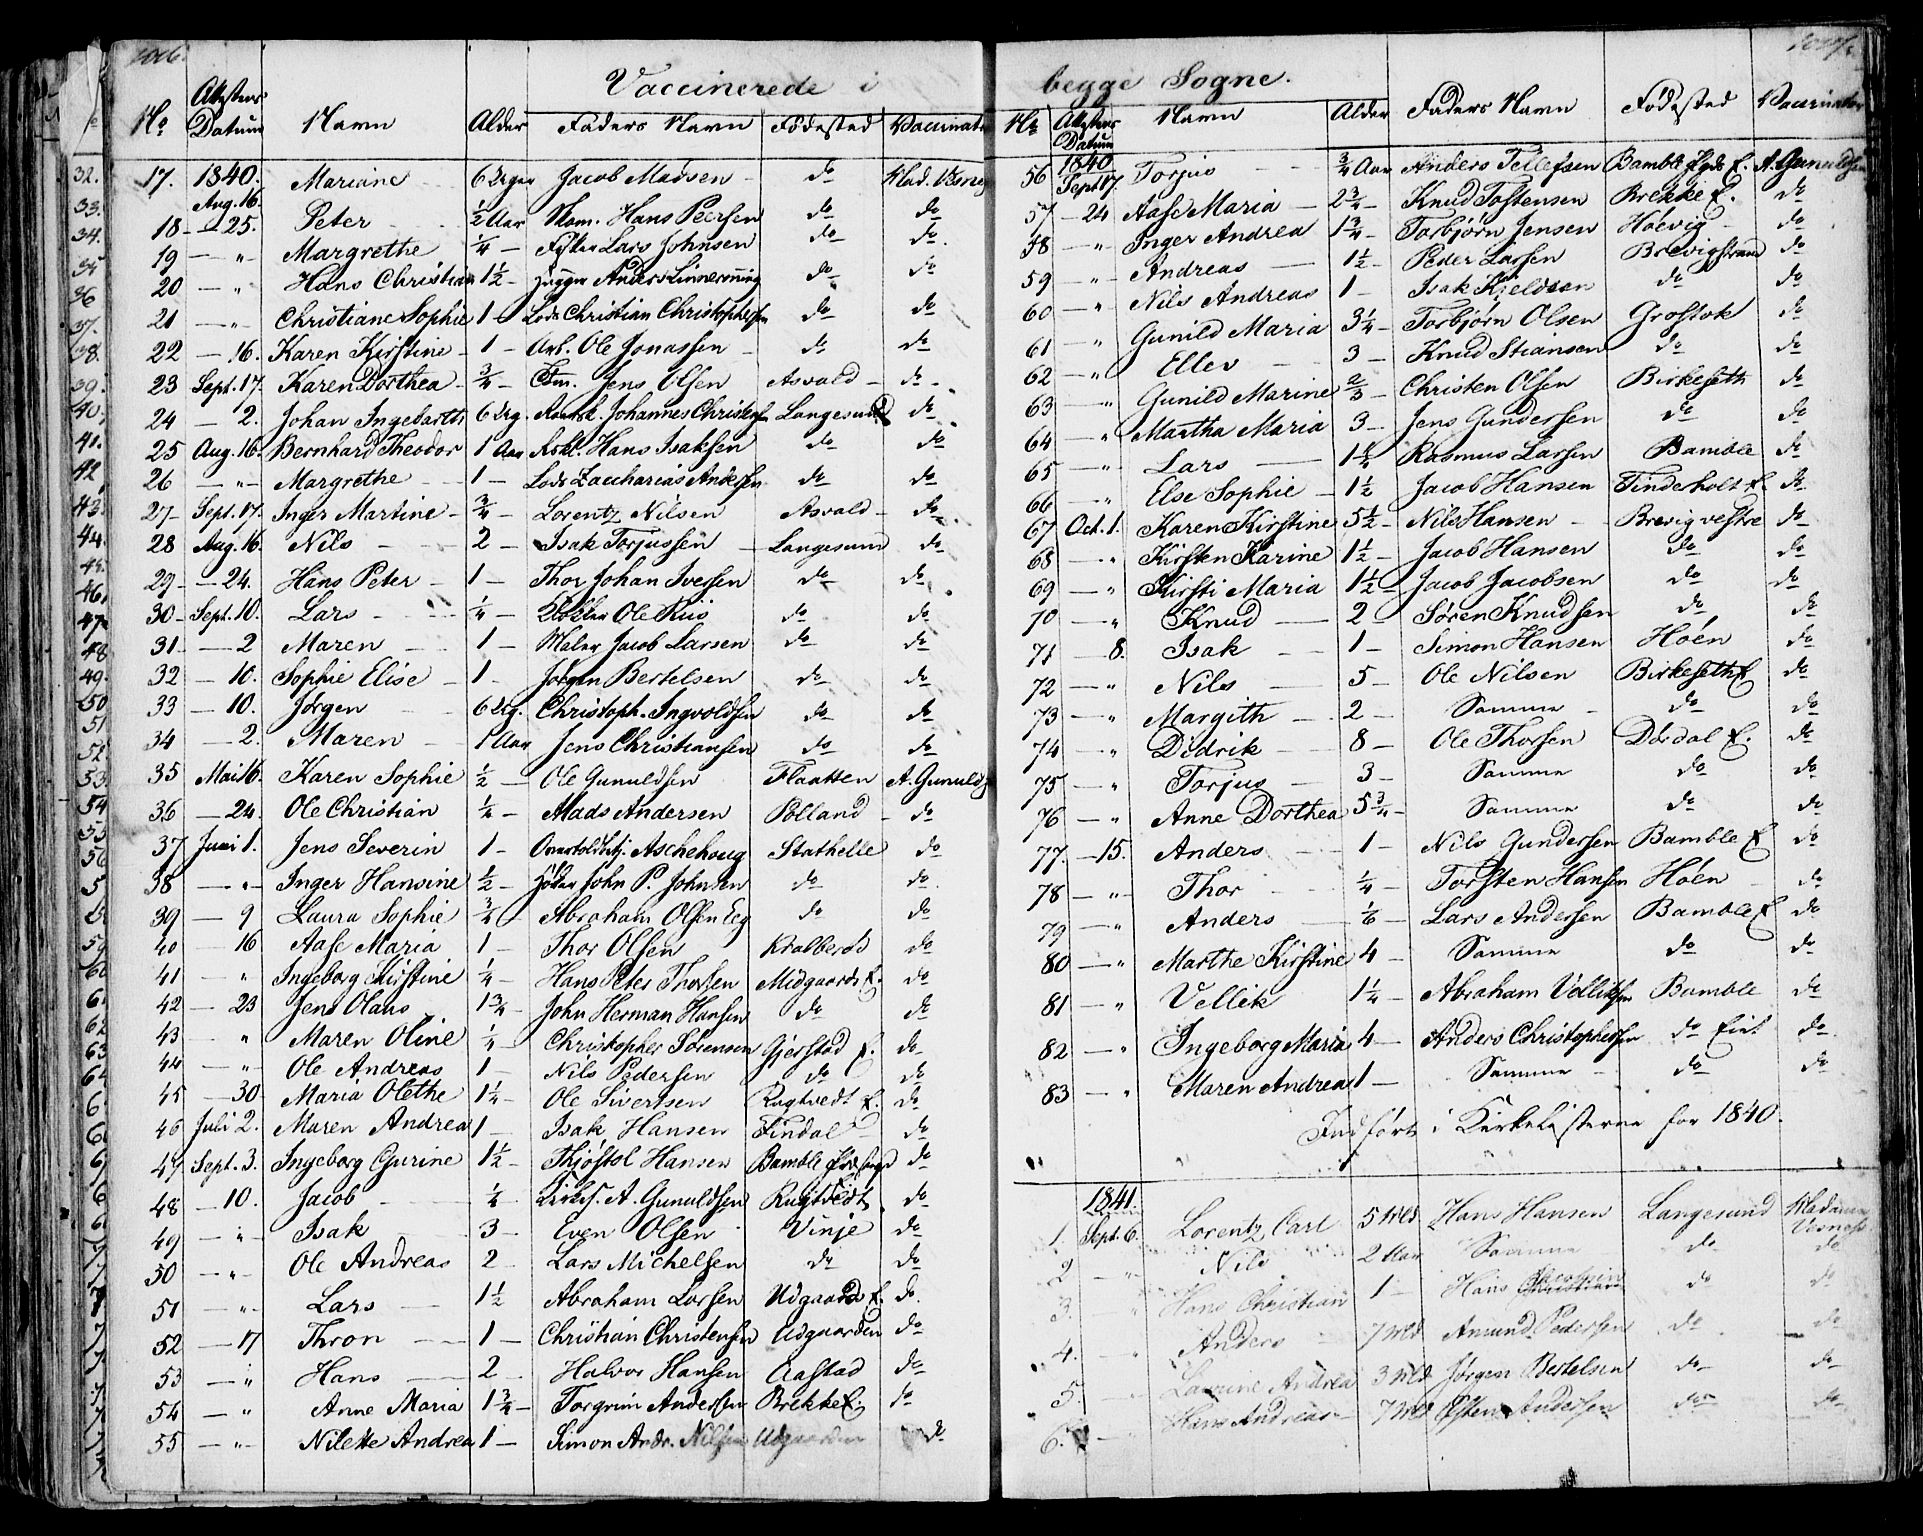 Vaccinerede i
No Attestens Datum Navn Alder Faders Navn Födested Vaccinatr
17. 1840. Aug. 16. Mariane 6 Jacob Madsen do Mad.
18 — 25. Peter ½ Aar Hans Peersen do do
19 — " Margrethe ¼ — Lars Johnsen do do
20 — " Hans Christian 1½ — Anders do do
21 — " Christiane Sophie 1 — Lods Christian Christophersen do do
22 — 16. Karen Kirstine 1 — Arb. Ole Jonassen do do
23 Sept. 17. Karen Dorthea ¾ — Jens Olsen Asvald do
24 — 2. Johan Ingebarth 6 Johannes Langesund do
25 Aug. 16. Bernhard Theodor 1 Aar Hans Isaksen do do
26 — " Margrethe 1 — Lods Zaccharias Andersen do do
27 Sept. 17. Inger Martine ¾ — Lorentz Nilsen Asvald do
28 Aug. 16. Nils 2 — Isak Torjussen Langesund do
29 — 24. Hans Peter 1 — Thor Johan Iversen do do
30 Sept. 10. Lars ¼ — Ole Riis do do
31 — 2 Maren 1 — Maler Jacob Larsen do do
32 — 10. Sophie Elise 1 — Jörgen Bertelsen do do
33 — 10. Jörgen 6 Christoph. Ingvoldsen do do
34 — 2. Maren 1 Aar Jens Christiansen do do
35 Mai 16. Karen Sophie ½ — Ole Gunuldsen Flaatten A. Gunulds
36 — 24. Ole Christian ¼ — Mads Andersen Polland do
37 Juni 1. Jens Severin 1 — Aschehoug Stathelle do
38 — " Inger Hansine ½ — John P. Johnsen do do
39 — 9 Laura Sophie ¾ — Abraham Olsen Eeg do do
40 — 16 Aase Maria 1 — Thor Olsen do
41 — " Ingeborg Kirstine ¼ — Hans Peter Thorsen Midgaards E. do
42 — 23 Jens Olaus 1¾ — John Herman Hansen do do
43 — " Maren Oline ¼ — Christopher Sörensen Gjerstad E. do
44 — " Ole Andreas 1 — Nils Pedersen do do
45 — 30 Maria Olethe 1¼ — Ole Sivertsen Rugtvedt E. do
46 Juli 2. Maren Andrea 1 — Isak Hansen Findal do
47 Sept. 3. Ingeborg Gurine 1½ — Thjöstol Hansen Bamble do
48 — 10. Jacob ¼ — A. Gunuldsen Rugtvedt do
49 — " Isak 3 — Even Olsen Vinje do
50 — " Ole Andreas 2 — Lars Michelsen do do
51 — " Lars 1½ Abraham Larsen Udgaards E. do
52 — 17 Thron 1 — Christian Christensen Udgaarden do
53 — " Hans 2 Halvor Hansen Aastad do
54 — " Anne Maria 1¾ — Torgrim Andersen Brekke E. do
55 — " Nilette Andrea 1 — Simon Andr. Nilsen Udgaarden do
begge Sogne.
No Attestens Datum Navn Alder Faders Navn Födested Vaccinator
56 1840 Sept 17. Torjus ¾ Aar Anders Tellefsen Bamble E. A. Gunuldsen
57 — 24 Aase Maria 2¾ — Knud Tostensen Brekke E. do
58 — " Inger Andrea 1¾ — Torbjörn Jensen Höevig do
59 — " Andreas 1½ — Peder Larsen Brevigstrand do
60 — " Nils Andreas 1 — Isak Kjeldsen do do
61 — " Gunild Maria 3¼ — Torbjörn Olsen Grostok do
62 — " Ellev 3 — Knud Stiansen do do
63 — " Gunild Marine ⅔ — Christen Olsen Birkeseth do
64 — " Martha Maria 3 — Jens Gundersen do do
65 — " Lars 1¼ — Rasmus Larsen Bamble do
66 — " Else Sophie 1½ Jacob Hansen Tinderholt E. do
67 Oct. 1. Karen Kirstine 5½ — Nils Hansen Brevig vestre do
68 — " Kirsten Karine 1½ — Jacob Hansen do do
69 — " Kirsti Maria 1½ — Jacob Jacobsen do do
70 — " Knud 2 Sören Knudsen do do
71 — 8. Isak 1 — Simon Hansen Höen do
72 — " Nils 5 — Ole Nilsen Birkeseth E. do
73 — " Margith 2 — Samme do do
74 — " Didrik 8 — Ole Thorsen Dördal E. do
75 — " Torjus 3 — Samme do do
76 — " Anne Dorthea 5¾ — Samme do do
77. — 15. Anders 1 — Nils Gundersen Bamble E. do
78 — " Thor ¼ — Torsten Hansen Höen do
79 — " Anders ⅙ — Lars Andersen Bamble E. do
80 — " Marthe Kirstine 4 — Samme do do
81 — " Vellek 1¼ — Abraham Velleksen Bamble do
82 — " Ingeborg Maria 4 — Anders Christophersen do Eiet do
83 — " Maren Andrea 1 — Samme do do
Indfört i Kirkelisterne for 1840.
1841.
1. Sept. 6. Lorentz Carl 5 Md Hans Hansen Langesund Madame
2 — " Nils 2 Aar Samme do do
3. " Hans Christian 1 — Hans do do
4. — " Anders 7 Md Amund Pedersen do do
5. Andrea 3 Md Jörgen Bertelsen do do
6. — Hans Andreas 7 Md Andersen do do